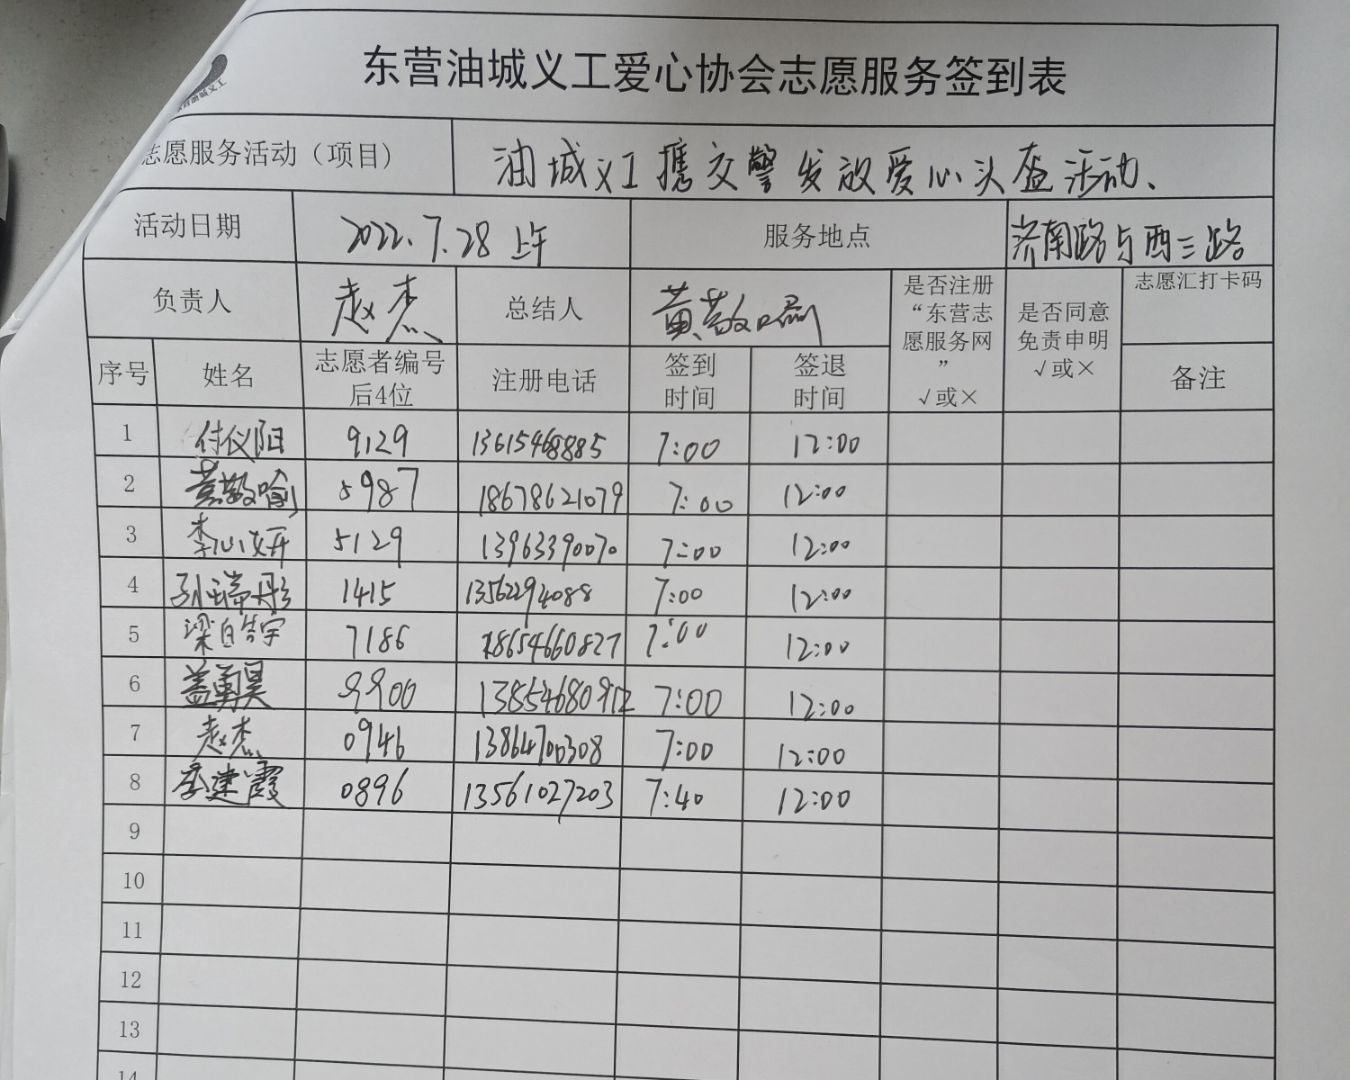 东营油城义工爱心协会志愿服务签到表
志愿服务活动（项目） 油城义工携交警发放爱心头盔活动、
活动日期 2022.7.28上午 服务地点 济南路与西三路
负责人 赵杰 总结人 黄敬喻 是否注册“东营志愿服务网” √或× 是否同意免责申明 √或× 志愿汇打卡码
序号 姓名 志愿者编号后4位 注册电话 签到时间 签退时间 备注
1 付仪阳 9129 13615468885 7:00 12:00
2 黄敬喻 5987 18678621079 7:00 12:00
3 李心妍 5129 13963390070 7:00 12:00
4 孙瑞彤 1415 13562294088 7:00 12:00
5 梁皓宇 7186 18654660827 7:00 12:00
6 盖勇昊 9900 13854680912 7:00 12:00
7 赵杰 0946 13864700308 7:00 12:00
8 李建霞 0896 13561027203 7:40 12:00
9
10
11
12
13
14